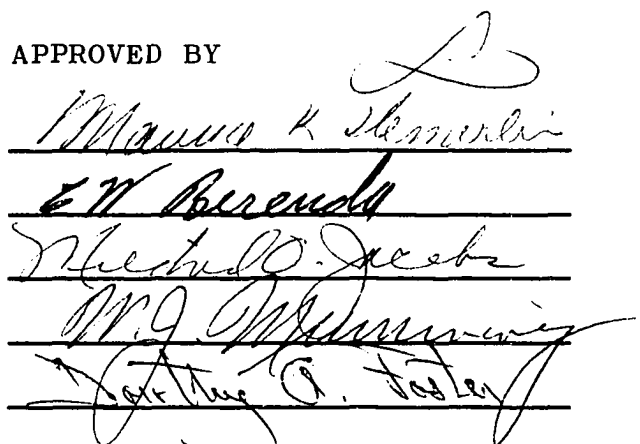 APPROVED BY
Maurice K Temerlin
C W Berenda
Mildred O. Jacobs
W. J.
Dorothy A. Foster